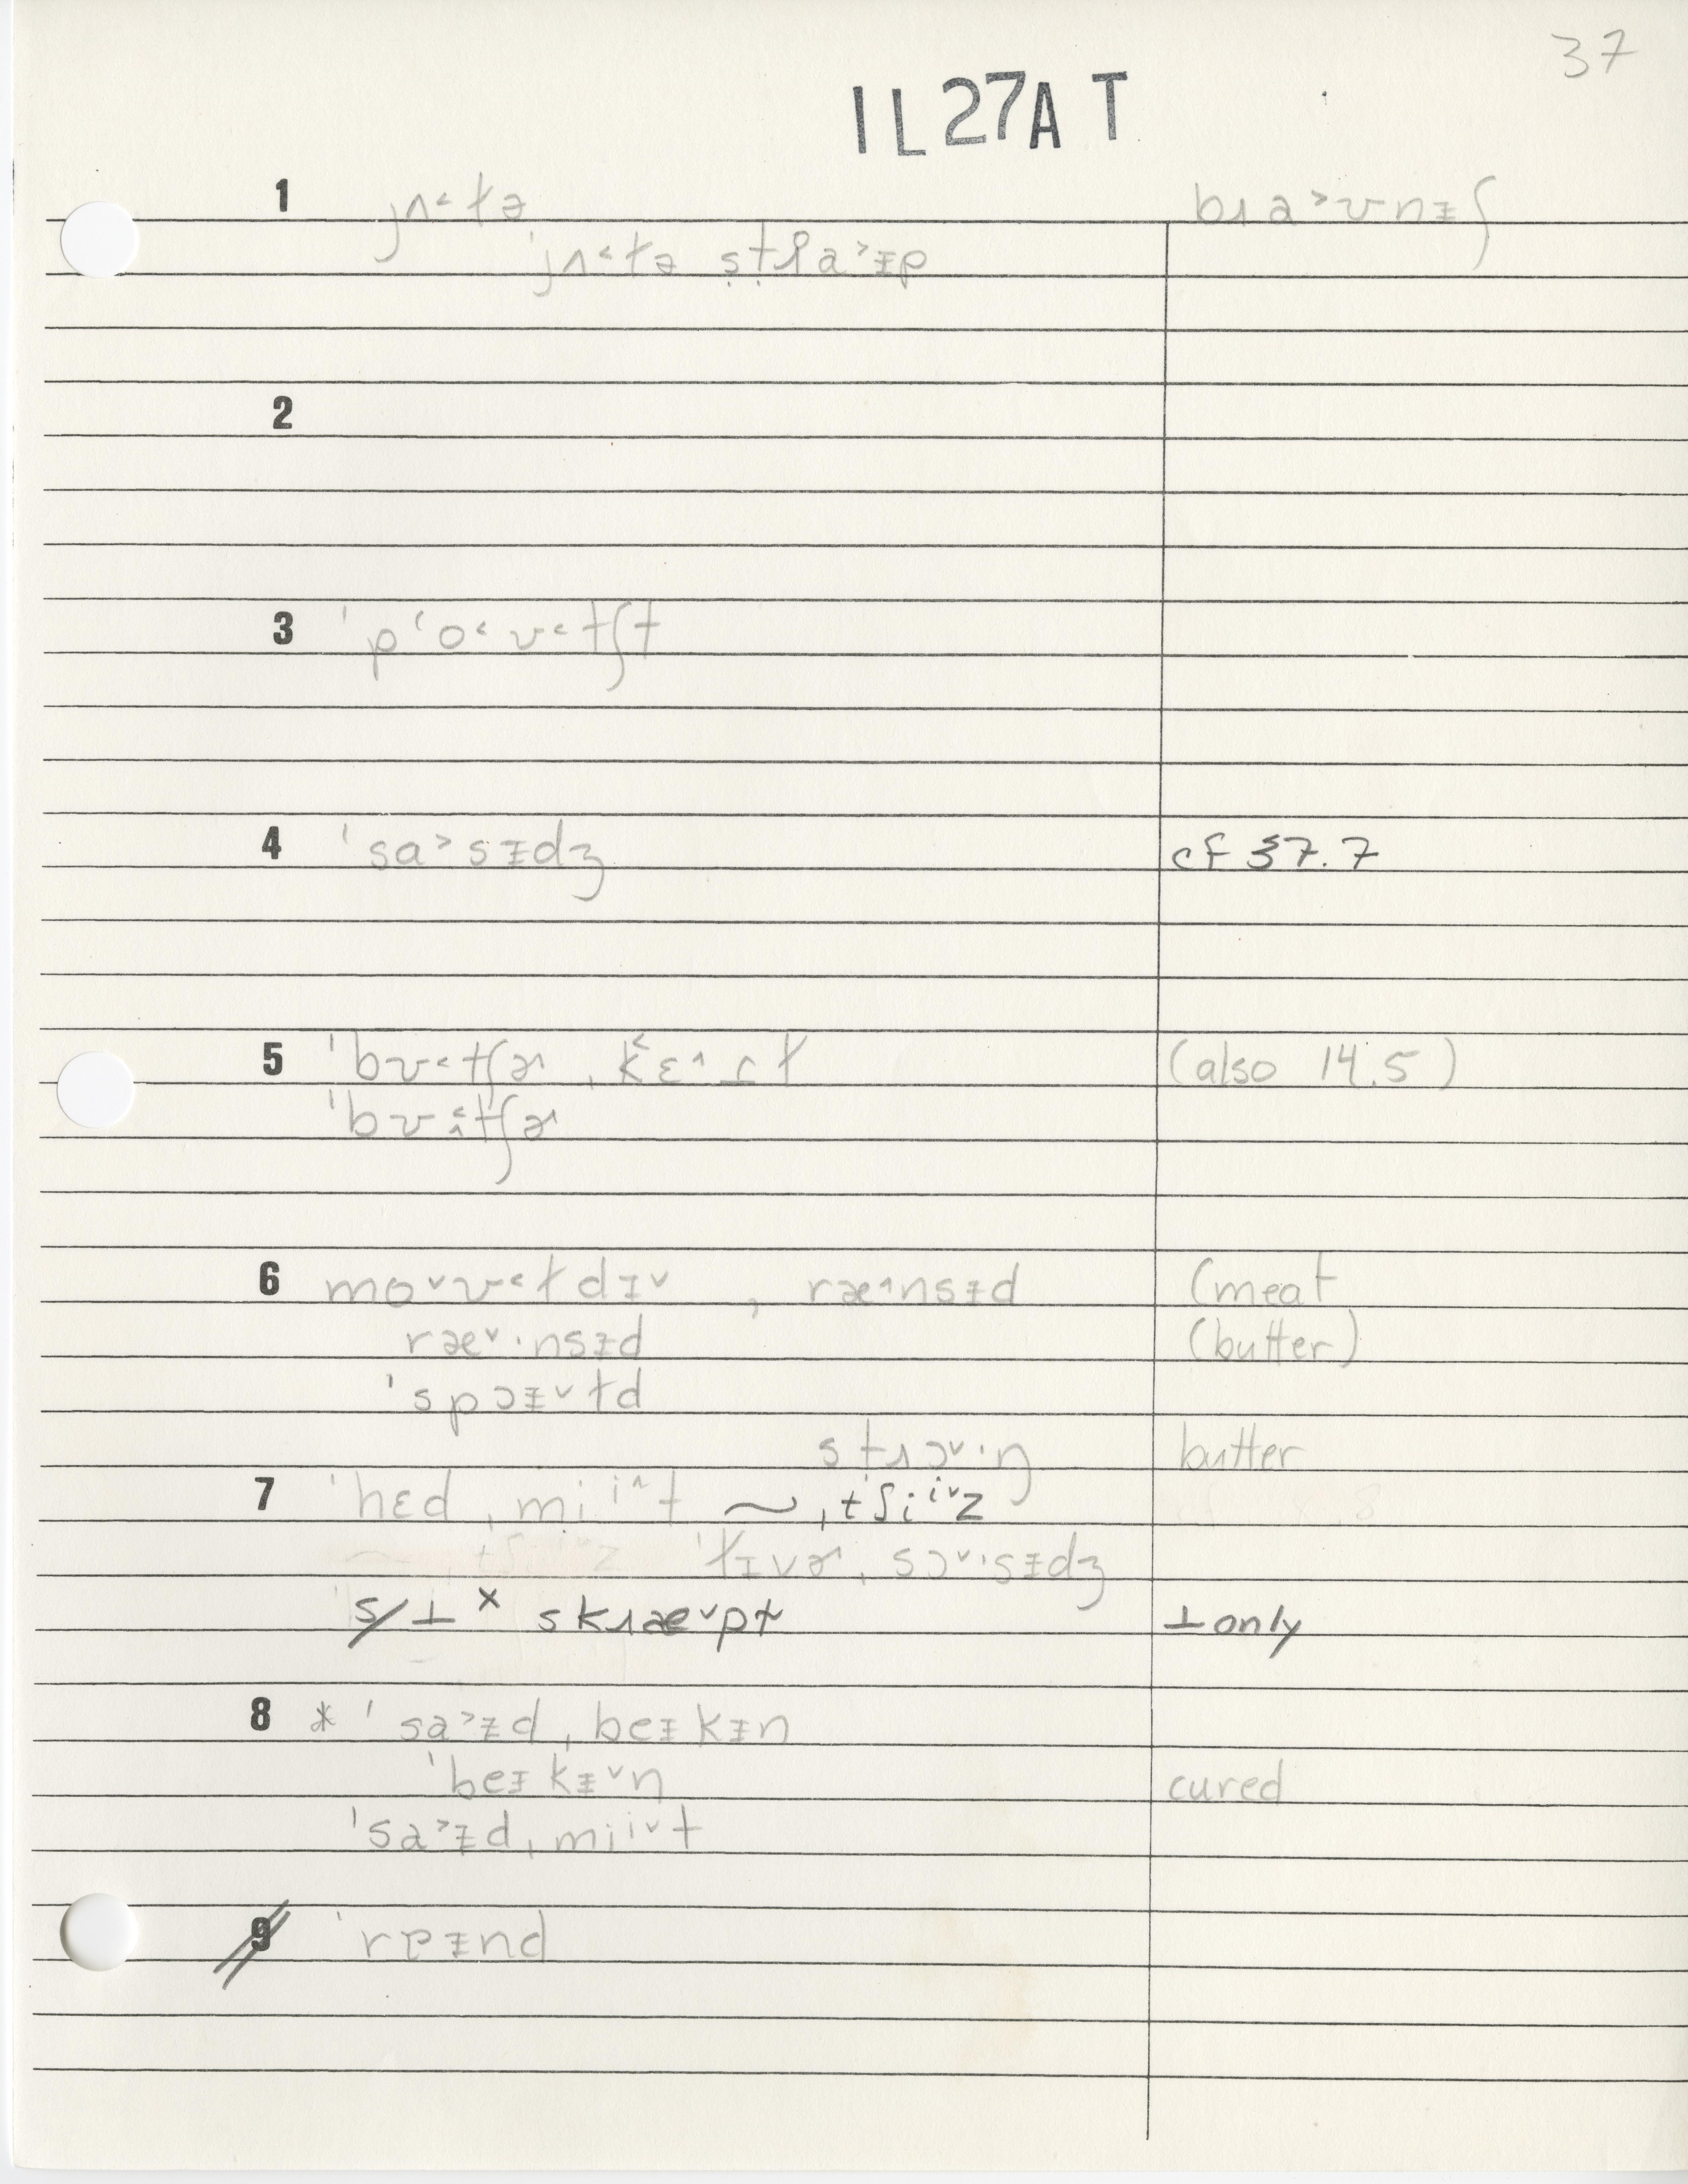 37
IL27AT
1 jʌ˂ɫə bɹa˃ʊnɪ̵ʃ
ˈjʌ˂ɫə s̩t̩ɹ̥a˃ɪ̵p
2
3 ˈpʻo˂ʊ˂tʃt
4 ˈsa˃sɪ̵dʒ cf 37.7
5 ˈbʊ˂tʃɚ ˌkʻɛ˄ɪt (also 14.5)
ˈbʊ˄˂tʃɚ
6 mo˅ʊ˂ɫdɪ˅ , ræ˄nsɪ̵d (meat
ræ˅·nsɪ̵d (butter)
ˈspɔɪ̵˅ɫd
stɹɔ˅·ŋ butter
7 ˈhɛd ˌmiⁱ˄t ~ ˌtʃiⁱ˅z
ˈɫɪvɚ ˌsɔ˅·sɪ̵dʒ
s/⊥ˣ skɹæ˅pɫ ⊥only
8 *ˈsa˃ɪ̵d ˌbeɪkɪ̵n
ˈbeɪkɪ̵˅ŋ cured
ˈsa˃ɪ̵d ˌmiⁱ˅t
9 ˈrɐɪ̵nd